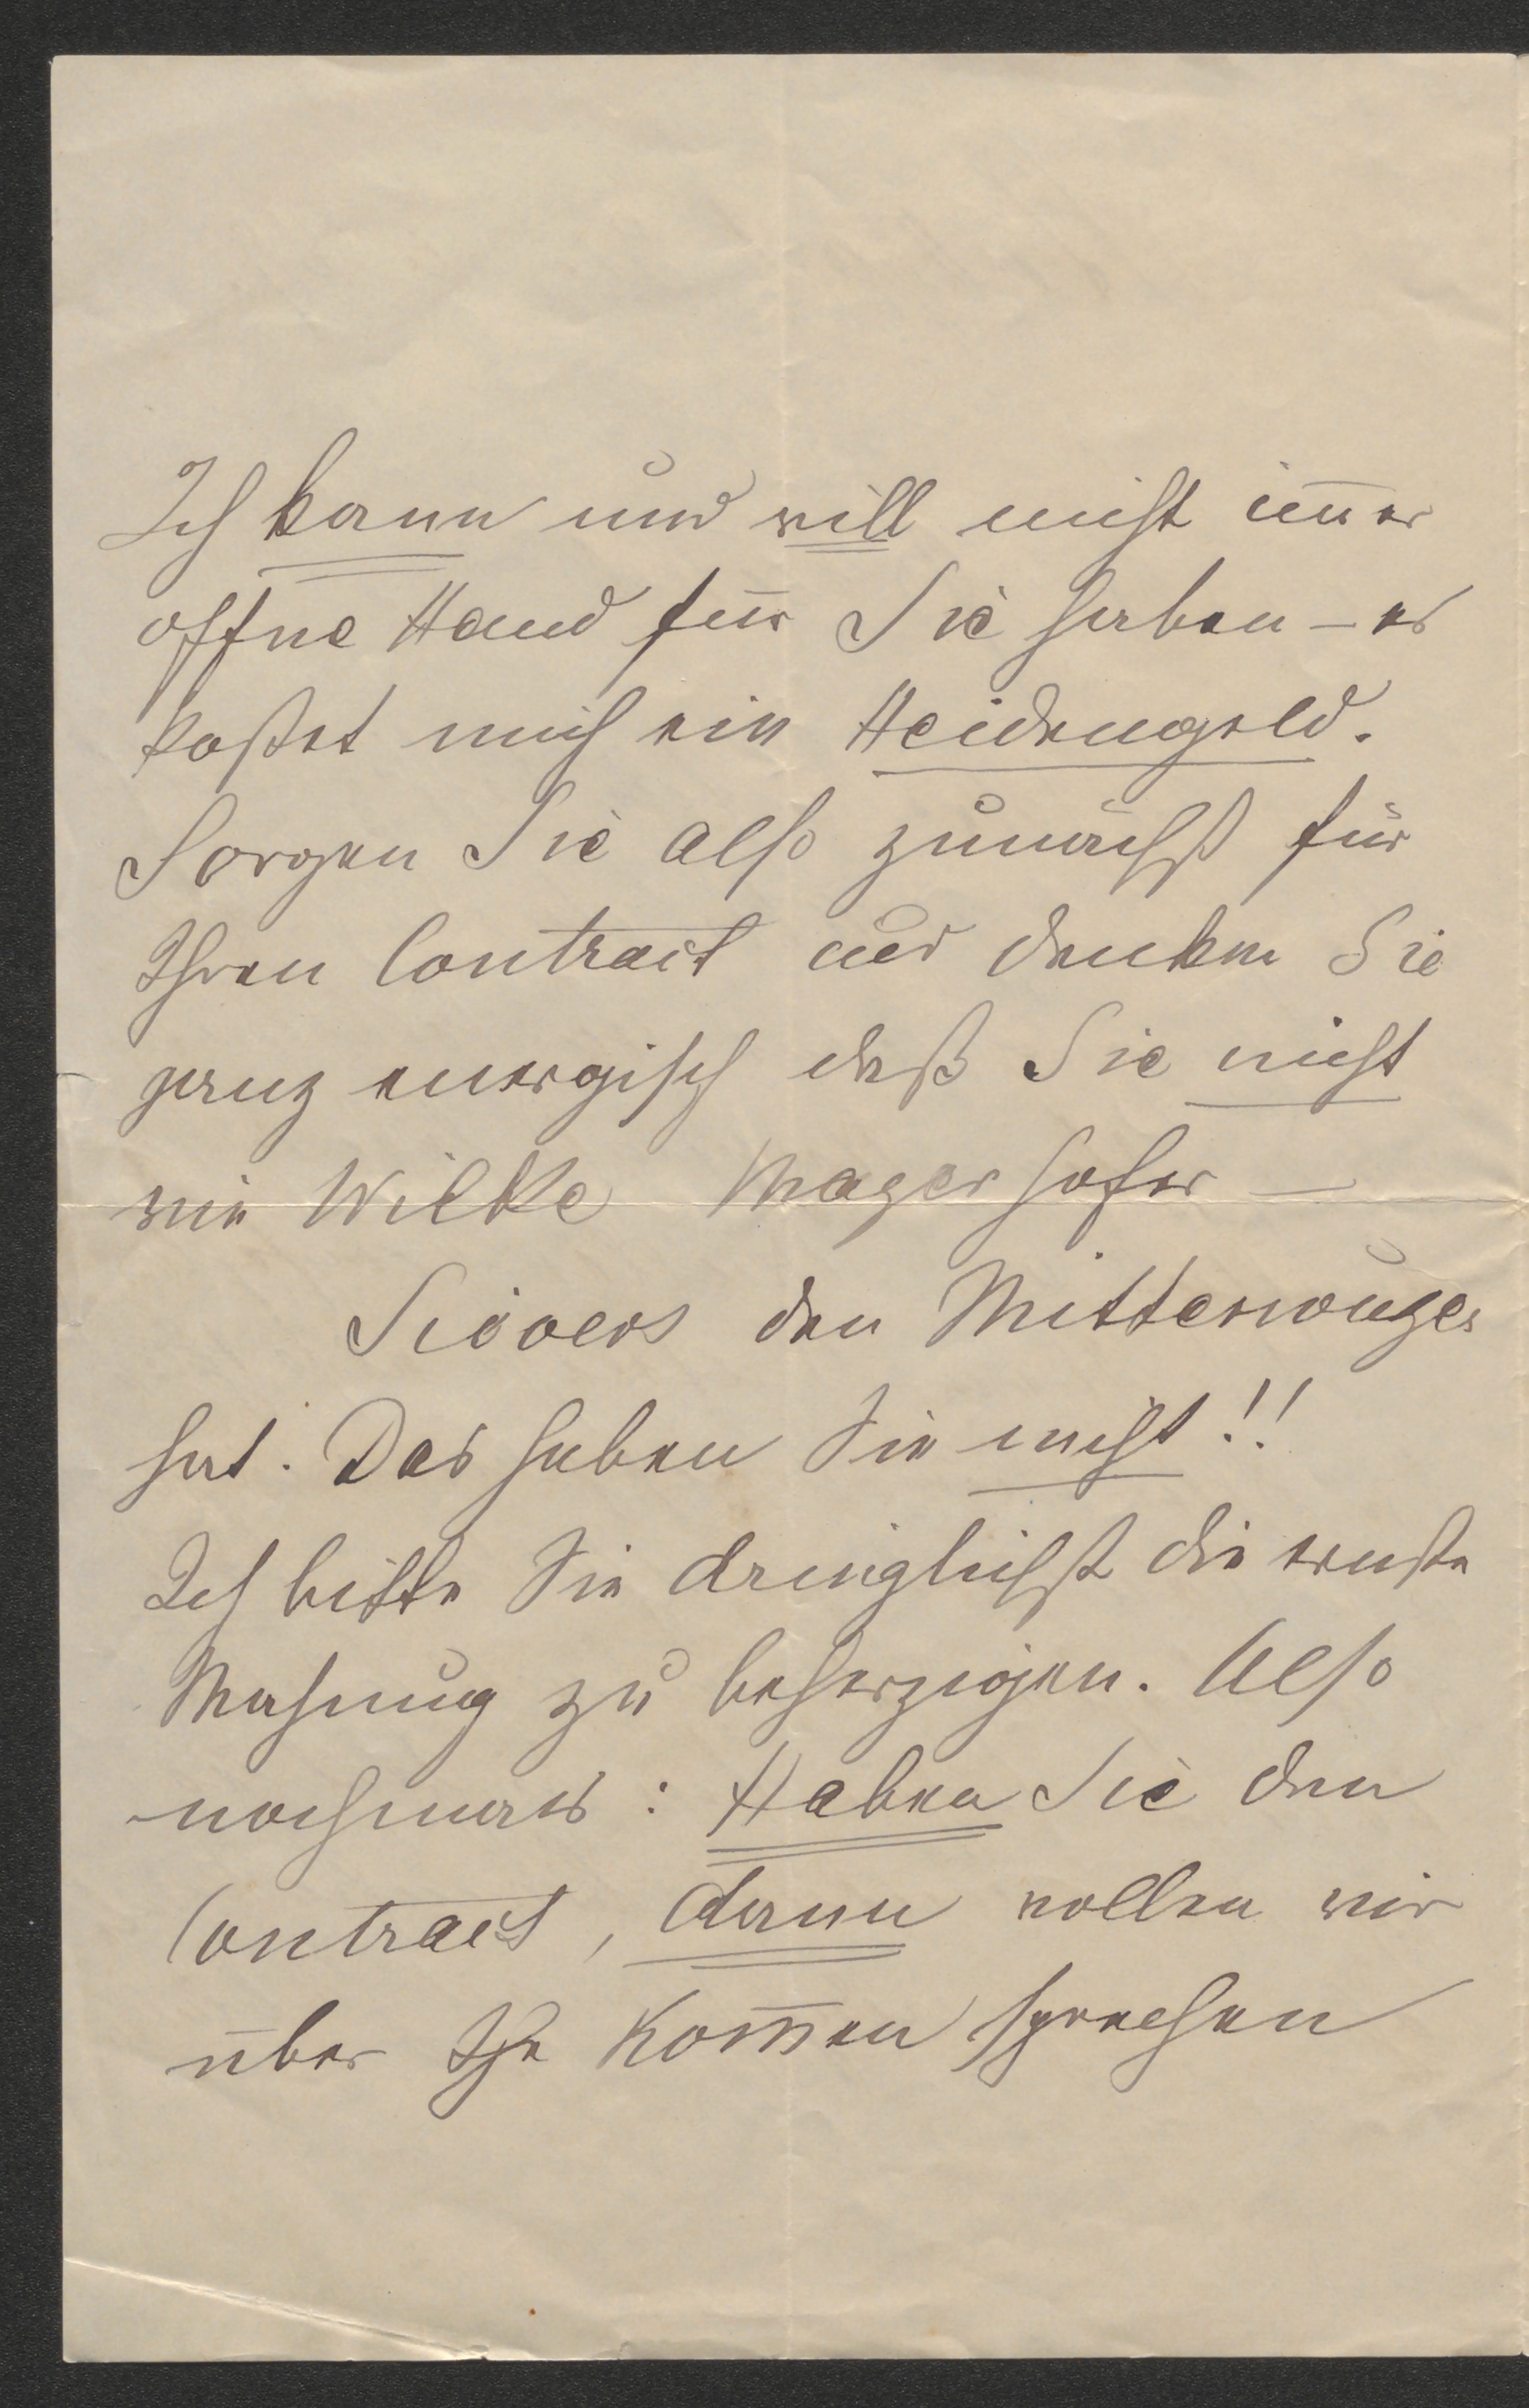 Ich kann und will nicht im̅er
offne Hand für Sie haben – es
kostet mich ein Heidengeld.
Sorgen Sie also zunächst für
Ihren Contract und denken Sie
ganz energisch daß Sie nicht
wie Wilke Magerhofer —
Sievers den Mitterwuzer
hat. Das haben Sie nicht!!
Ich bitte Sie dringlichst die ernste
Mahnung zu beherzigen. Also
nochmals: Haben Sie den
Contract, dann wollen wir
über Ihr Kom̅en sprechen